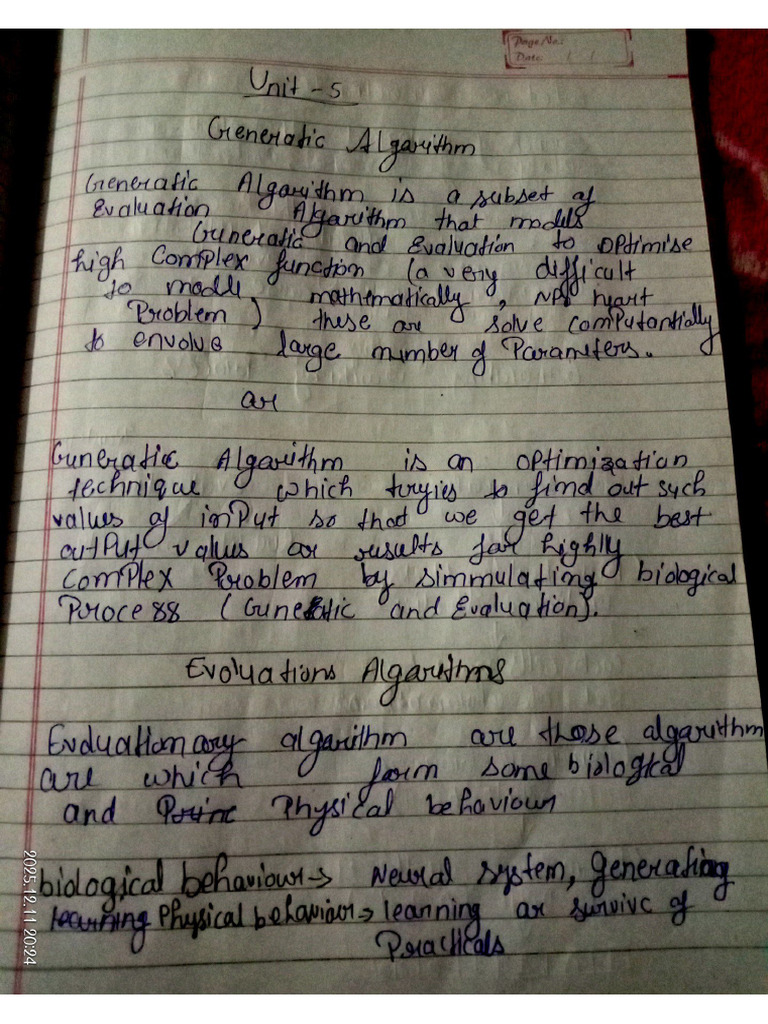 Page No.:
Date: / /
Unit - 5
Generatic Algarithm
Generatic Algarithm is a subset of
Evaluation Algarithm that models
Guneratic and Evaluation to optimise
high Complex function (a very difficult
to modle mathematically, NP heart
Problem) these are solve computantially
to envolve large number of Parameters.
ar
Guneratic Algarithm is an optimization
technique which toryies to find out such
values of inPut so that we get the best
outPut values ar results far highly
ComPlex Problem by simmulating biological
Process (Gunetic and Evaluation).
Evoluations Algarithms
Evoluationary algarithm are those algarithm
are which farm some biological
and Physical behaviour
biological behaviour → Neural system, Generating
learning Physical behaviour → learning ar survive of
Practicals
2025.12.11 20:24